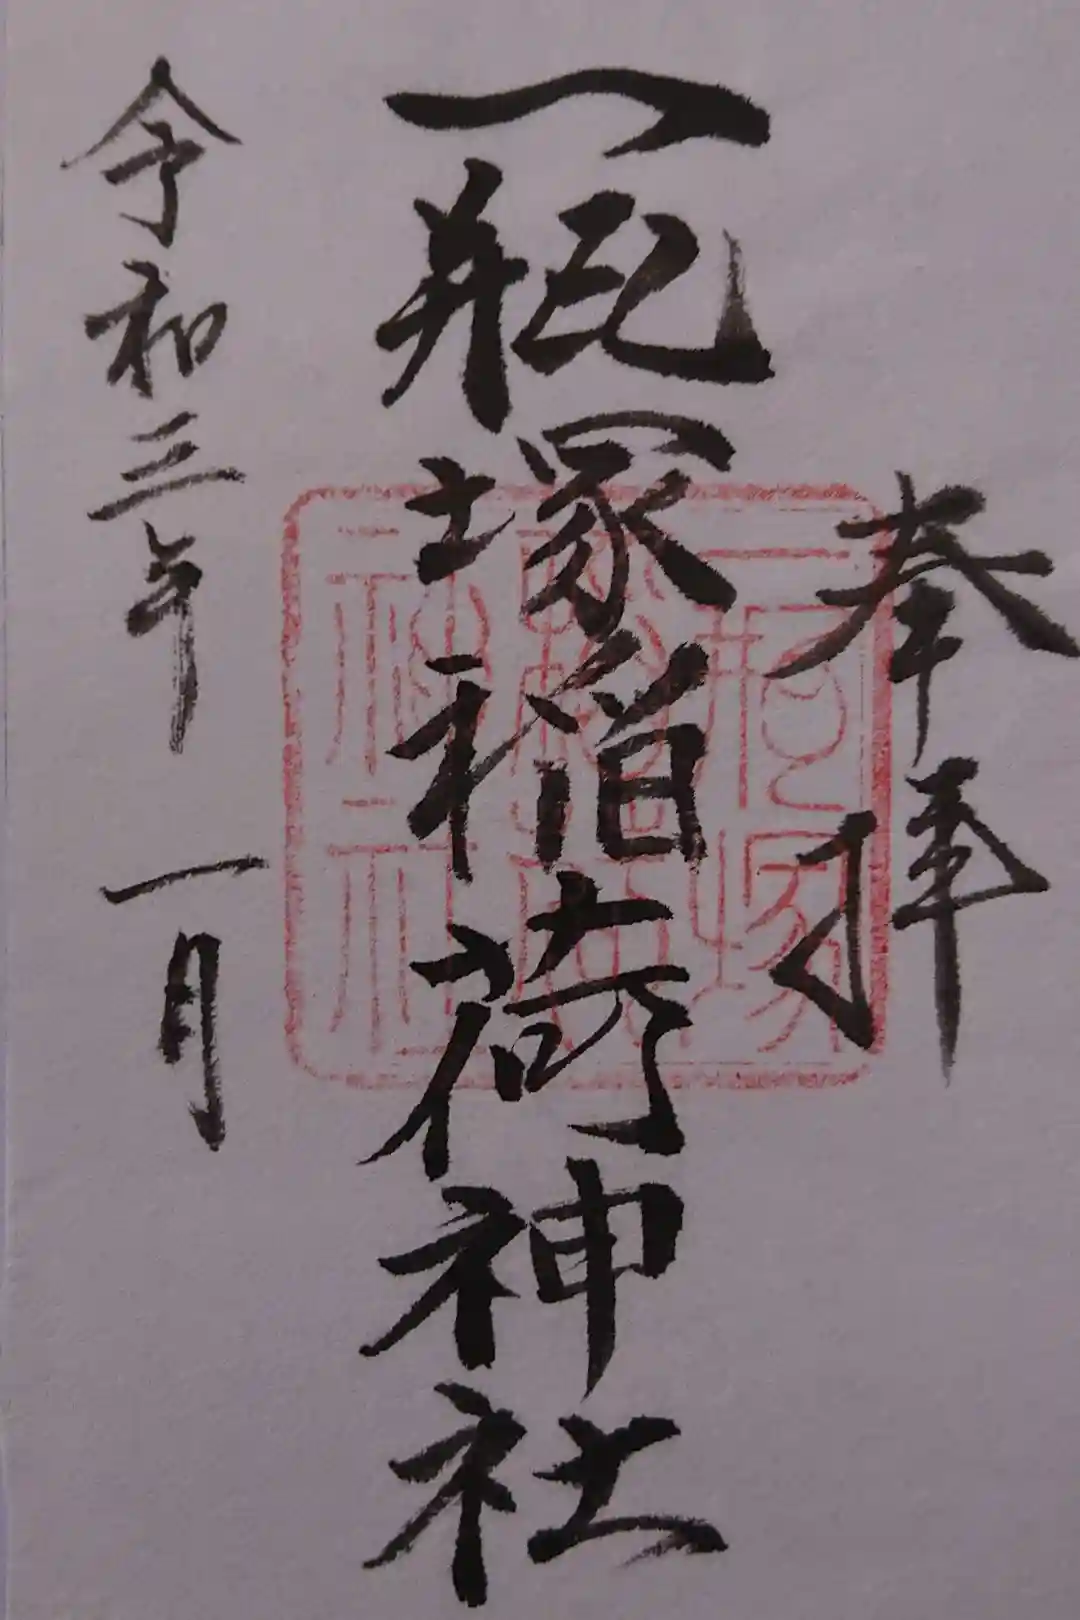 奉拝
一瓶塚稲荷神社
令和三年 一月
一瓶塚
稲荷
神社